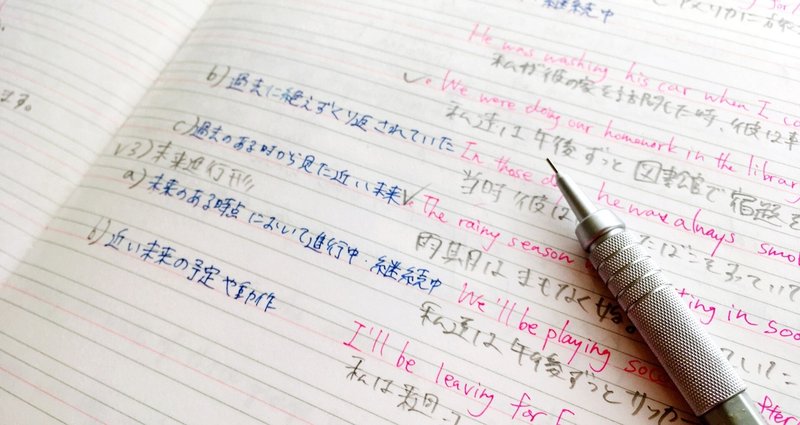 ます。
継続中
アメリカに
He was washing his car when I
私が彼の家を訪問した時、彼は車
We were doing our homework in the library
b) 過去に絶えずくり返されていた
私達は午後ずっと図書館で宿題を
In those he was always smo
c) 過去のある時から見た近い未来
当時彼は たばこを
3) 未来進行形
The rainy season ting in soo
a) 未来のある時点において進行中・継続中
雨期はまもなく始
We'll be playing soc
b) 近い未来の予定や動作
私達は午後ずっとサッカー
I'll be leaving for
私は